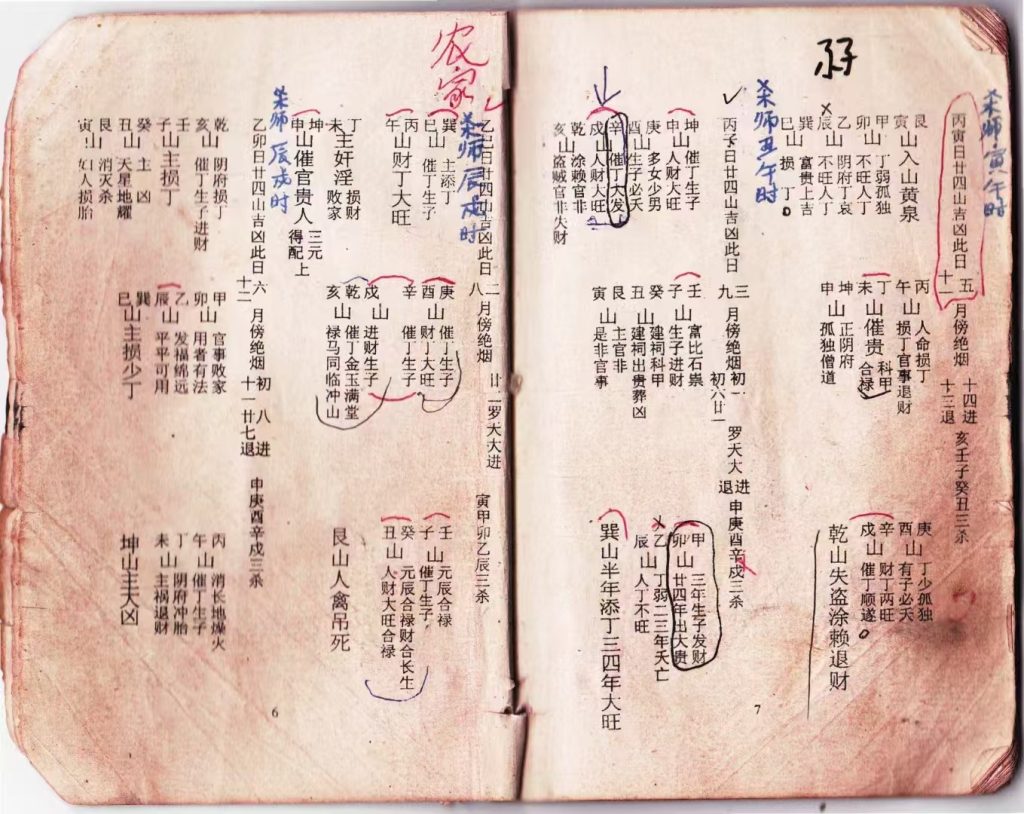 弱
杀师寅午时
丙寅日廿四山吉凶此日
五
十一
月傍绝烟
十四进
十三退
亥壬子癸丑三杀
艮
寅山入山黄泉
甲 丁弱孤独
卯山 不旺人丁
乙 阴府丁哀
辰山 不旺人丁
巽 富贵上吉
巳山 损丁
丙 人命损丁
午山 损丁官事退财
丁 科甲
未山催贵 合禄
坤 正阴府
申山 孤独僧道
庚 丁少孤独
酉山 有子必夭
辛 财丁两旺
戌山 催丁顺遂
乾山失盗涂赖退财
杀师丑午时
丙子日廿四山吉凶此日
三
九
月傍绝烟
初一
初六廿一
罗天大进
退
申庚酉辛戌三杀
坤 催丁生子
申山 人财大旺
庚 多女少男
酉山 生子必夭
辛 催丁大发
戌山 人财大旺
乾 涂赖官非
亥山 盗贼官非失财
壬 富比石崇
子山 生子进财
癸 建祠科甲
丑山 建祠出贵葬凶
艮 主官非
寅山 是非官事
甲 三年生子发财
卯山 廿四年出大贵
乙 丁弱二三年夭亡
辰山 人丁不旺
巽山半年添丁三四年大旺
7
农家
杀师辰戌时
乙巳日廿四山吉凶此日
二
八
月傍绝烟
廿二罗天大进
寅甲卯乙辰三杀
巽 主添丁
巳山 催丁生子
丙
午山财丁大旺
丁 损财
未山主奸淫 败家
坤 三元
申山催官贵人 得配上
庚 催丁生子
酉山 财丁大旺
辛 催丁生子
戌山 进财生子
乾 催丁金玉满堂
亥山 禄马同临冲山
壬 元辰合禄
子山 催丁生子
癸 元辰合禄财合长生
丑山 人财大旺合禄
艮山人禽吊死
杀师辰戌时
乙卯日廿四山吉凶此日
六
十二
月傍绝烟
初八进
十一廿七退
申庚酉辛戌三杀
乾 阴府损丁
亥山 催丁生子进财
壬
子山主损丁
癸 主凶
丑山 天星地耀
艮 消灭杀
寅山 妇人损胎
甲 官事败家
卯山 用者有法
乙 发福绵远
辰山 平平可用
巽
巳山主损少丁
丙 消长地燥火
午山 催丁生子
丁 阴府冲胎
未山 主祸退财
坤山主大凶
6